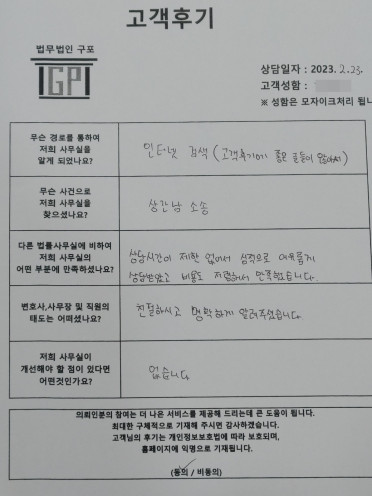 고객후기
법무법인 구포
GP
상담일자 : 2023. 2.23.
고객성함 :
※ 성함은 모자이크처리 됩니
무슨 경로를 통하여
저희 사무실을
알게 되었나요?
인터넷 검색 (고객후기에 좋은 글들이 많아서)
무슨 사건으로
저희 사무실을
찾으셨나요?
상간남 소송
다른 법률사무실에 비하여
저희 사무실의
어떤 부분에 만족하셨나요?
상담시간이 제한 없어서 심적으로 여유롭게
상담받았고 비용도 저렴해서 만족했습니다.
변호사,사무장 및 직원의
태도는 어떠셨나요?
친절하시고 명확하게 알려주셨습니다.
저희 사무실이
개선해야 할 점이 있다면
어떤것인가요?
없습니다
의뢰인분의 참여는 더 나은 서비스를 제공해 드리는데 큰 도움이 됩니다.
최대한 구체적으로 기재해 주시면 감사하겠습니다.
고객님의 후기는 개인정보보호법에 따라 보호되며,
홈페이지에 익명으로 기재됩니다.
(동의 / 비동의)